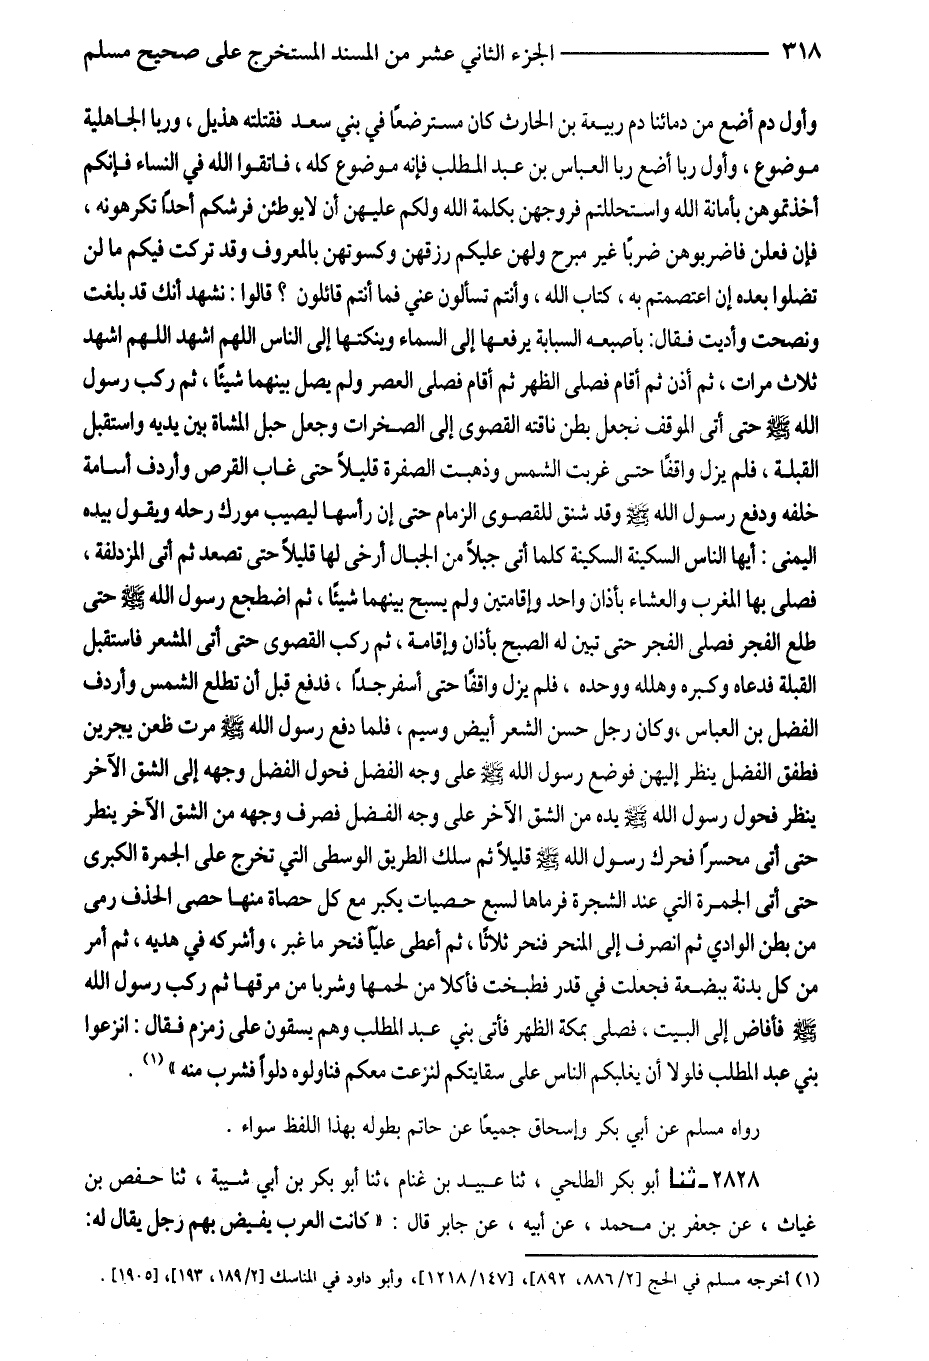 ٣١٨ ــــــــــ الجزء الثاني عشر من المسند المستخرج على صحيح مسلم
وأول دم أضع من دمائنا دم ربيعة بن الحارث كان مسترضعًا في بني سعد فقتلته هذيل ، وربا الجاهلية
موضوع ، وأول ربا أضع ربا العباس بن عبد المطلب فإنه موضوع كله ، فاتقوا الله في النساء فإنكم
أخذتموهن بأمانة الله واستحللتم فروجهن بكلمة الله ولكم عليهن أن لايوطئن فرشكم أحدًا تكرهونه ،
فإن فعلن فاضربوهن ضربًا غير مبرح ولهن عليكم رزقهن وكسوتهن بالمعروف وقد تركت فيكم ما لن
تضلوا بعده إن اعتصمتم به ، كتاب الله ، وأنتم تسألون عني فما أنتم قائلون ؟ قالوا : نشهد أنك قد بلغت
ونصحت وأديت فقال: بأصبعه السبابة يرفعها إلى السماء وينكتها إلى الناس اللهم اشهد اللهم اشهد
ثلاث مرات ، ثم أذن ثم أقام فصلى الظهر ثم أقام فصلى العصر ولم يصل بينهما شيئًا ، ثم ركب رسول
الله ﷺ حتى أتى الموقف نجعل بطن ناقته القصوى إلى الصخرات وجعل حبل المشاة بين يديه واستقبل
القبلة ، فلم يزل واقفًا حتى غربت الشمس وذهبت الصفرة قليلاً حتى غاب القرص وأردف أسامة
خلفه ودفع رسول الله ﷺ وقد شنق للقصوى الزمام حتى إن رأسها ليصيب مورك رحله ويقول بيده
اليمنى : أيها الناس السكينة السكينة كلما أتى جبلاً من الجبال أرخى لها قليلاً حتى تصعد ثم أتى المزدلفة ،
فصلى بها المغرب والعشاء بأذان واحد وإقامتين ولم يسبح بينهما شيئًا ، ثم اضطجع رسول الله ﷺ حتى
طلع الفجر فصلى الفجر حتى تبين له الصبح بأذان وإقامة ، ثم ركب القصوى حتى أتى المشعر فاستقبل
القبلة فدعاه وكبره وهلله ووحده ، فلم يزل واقفًا حتى أسفر جدًا ، فدفع قبل أن تطلع الشمس وأردف
الفضل بن العباس ،وكان رجل حسن الشعر أبيض وسيم ، فلما دفع رسول الله ﷺ مرت ظعن يجرين
فطفق الفضل ينظر إليهن فوضع رسول الله ﷺ على وجه الفضل فحول الفضل وجهه إلى الشق الآخر
ينظر فحول رسول الله ﷺ يده من الشق الآخر على وجه الفضل فصرف وجهه من الشق الآخر ينظر
حتى أتى محسرًا فحرك رسول الله ﷺ قليلاً ثم سلك الطريق الوسطى التي تخرج على الجمرة الكبرى
حتى أتى الجمرة التي عند الشجرة فرماها لسبع حصيات يكبر مع كل حصاة منها حصى الخذف رمى
من بطن الوادي ثم انصرف إلى المنحر فنحر ثلاثًا ، ثم أعطى عليًا فنحر ما غبر ، وأشركه في هديه ، ثم أمر
من كل بدنة ببضعة فجعلت في قدر فطبخت فأكلا من لحمها وشربا من مرقها ثم ركب رسول الله
ﷺ فأفاض إلى البيت ، فصلى بمكة الظهر فأتى بني عبد المطلب وهم يسقون على زمزم فقال : انزعوا
بني عبد المطلب فلولا أن يغلبكم الناس على سقايتكم لنزعت معكم فناولوه دلواً فشرب منه » (١) .
رواه مسلم عن أبي بكر وإسحاق جميعًا عن حاتم بطوله بهذا اللفظ سواء .
٢٨٢٨ـ ثنا أبو بكر الطلحي ، ثنا عبيد بن غنام ،ثنا أبو بكر بن أبي شيبة ، ثنا حفص بن
غياث ، عن جعفر بن محمد ، عن أبيه ، عن جابر قال : « كانت العرب يفيض بهم رجل يقال له:
(١) أخرجه مسلم في الحج [٨٨٦/٢، ٨٩٢]، [١٢١٨/١٤٧]، وأبو داود في المناسك [١٨٩/٢، ١٩٣]، [١٩٠٥] .